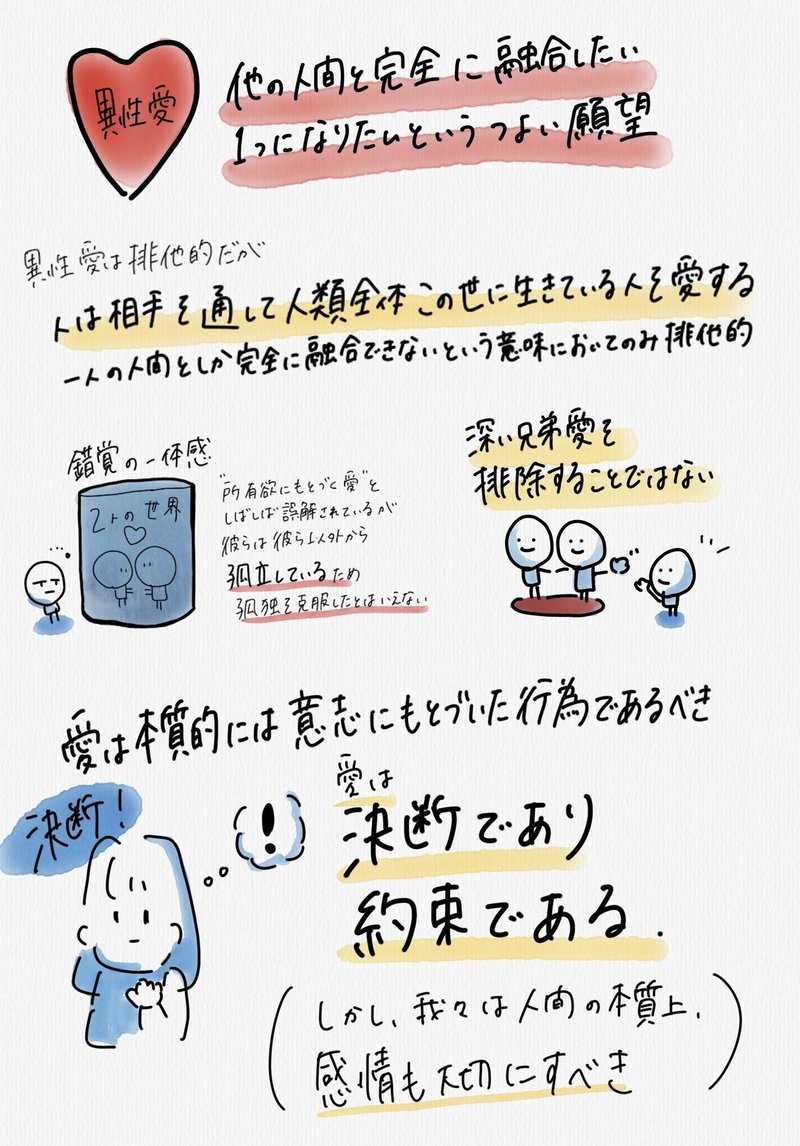 異性愛
他の人間と完全に融合したい
1つになりたいというつよい願望
異性愛は排他的だが
人は相手を通して人類全体この世に生きている人を愛する
一人の人間としか完全に融合できないという意味においてのみ排他的
錯覚の一体感
2人の世界
"所有欲にもとづく愛"と
しばしば誤解されているが
彼らは彼ら以外から
孤立しているため
孤独を克服したとはいえない
深い兄弟愛を
排除することではない
愛は本質的には意志にもとづいた行為であるべき
決断!
!
愛は
決断であり
約束である.
(しかし、我々は人間の本質上、
感情も大切にすべき)